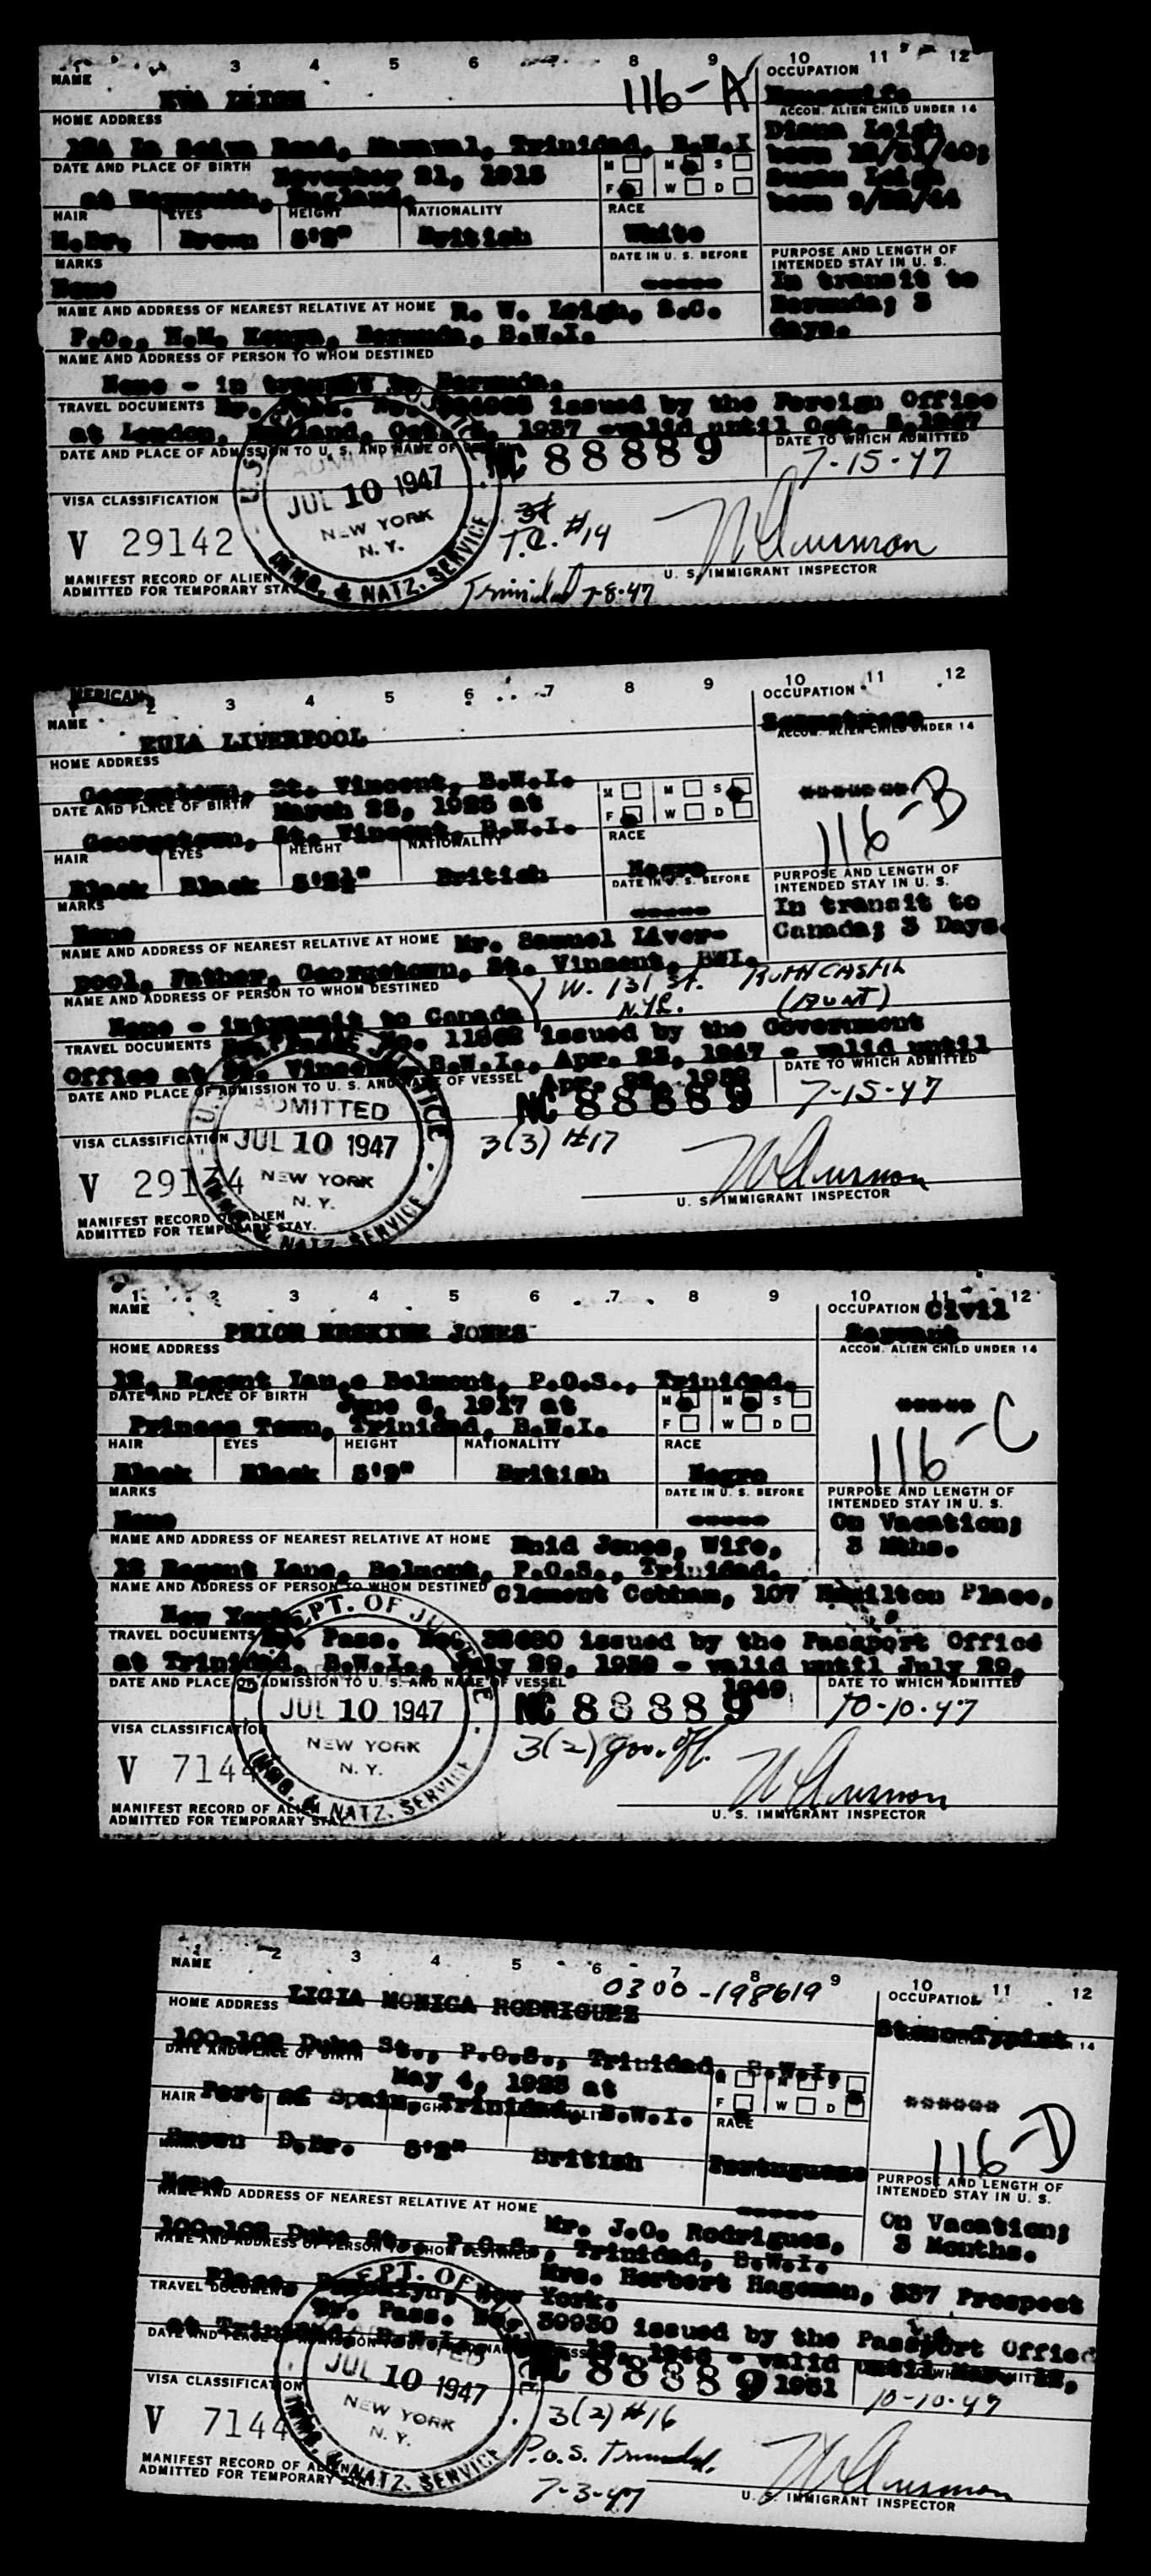 3 4 5 6 8 9 10 11 12
NAME
EVA LEIGH
116-A
OCCUPATION
Housewife
HOME ADDRESS
ACCOM. ALIEN CHILD UNDER 14
Road, Maraval, Trinidad, B.W.I
Diana Leigh
born 12/31/40;
Susan Leigh
born
DATE AND PLACE OF BIRTH
November 21, 1915
England.
M M S
F W D
HAIR EYES HEIGHT NATIONALITY RACE
Brown 5'2" British White
MARKS
None
DATE IN U. S. BEFORE
PURPOSE AND LENGTH OF
INTENDED STAY IN U. S.
In transit to
Bermuda; 3
days.
NAME AND ADDRESS OF NEAREST RELATIVE AT HOME R. W. Leigh,
P.O., H.M. Kenya, Bermuda, B.W.I.
NAME AND ADDRESS OF PERSON TO WHOM DESTINED
None - in transit to Bermuda.
TRAVEL DOCUMENTS issued by the Foreign Office
at London, England, Oct. 1937 valid until Oct.
DATE AND PLACE OF ADMISSION TO U. S. AND NAME OF
NC 88889
DATE TO WHICH ADMITTED
7-15-47
ADMITTED
JUL 10 1947
NEW YORK
N. Y.
IMMG. & NATZ. SERVICE
VISA CLASSIFICATION
V 29142
T.C. #14
Trinidad 7-8-47
U. S. IMMIGRANT INSPECTOR
MANIFEST RECORD OF ALIEN
ADMITTED FOR TEMPORARY STAY
2 3 4 5 6 7 8 9 10 11 12
NAME
EULA LIVERPOOL
OCCUPATION
Seamstress
HOME ADDRESS
ACCOM. ALIEN CHILD UNDER 14
Georgetown, St. Vincent, B.W.I.
DATE AND PLACE OF BIRTH
March 25, 1925 at
Georgetown, St. Vincent, B.W.I.
M M S
F W D
116-B
HAIR EYES HEIGHT NATIONALITY RACE
Black Black 5'2½" British Negro
MARKS
None
DATE IN U. S. BEFORE
PURPOSE AND LENGTH OF
INTENDED STAY IN U. S.
In transit to
Canada; 3 Days.
NAME AND ADDRESS OF NEAREST RELATIVE AT HOME Mr. Samuel Liver-
pool, Father, Georgetown, St. Vincent, BWI.
NAME AND ADDRESS OF PERSON TO WHOM DESTINED
W. 131 ST. RUTH
N.Y.C. (AUNT)
None - intransit to Canada
TRAVEL DOCUMENTS issued by the Government
Office at St. Vincent, B.W.I., Apr. 1947 - valid until
Apr.
DATE AND PLACE OF ADMISSION TO U. S. AND NAME OF VESSEL
NC 88889
DATE TO WHICH ADMITTED
7-15-47
ADMITTED
JUL 10 1947
NEW YORK
N. Y.
& NATZ. SERVICE
VISA CLASSIFICATION
3(3) #17
V 29134
U. S. IMMIGRANT INSPECTOR
MANIFEST RECORD OF ALIEN
ADMITTED FOR TEMPORARY STAY.
1 2 3 4 5 6 7 8 9 10 11 12
NAME
PRIOR ERSKINE JONES
OCCUPATION Civil
Servant
HOME ADDRESS
ACCOM. ALIEN CHILD UNDER 14
12, Regent Lane, Belmont, P.O.S., Trinidad.
DATE AND PLACE OF BIRTH
June 6, 1917 at
Princes Town, Trinidad, B.W.I.
M M S
F W D
116-C
HAIR EYES HEIGHT NATIONALITY RACE
Black Black 5'9" British Negro
MARKS
None
DATE IN U. S. BEFORE
PURPOSE AND LENGTH OF
INTENDED STAY IN U. S.
On Vacation;
3 Mths.
NAME AND ADDRESS OF NEAREST RELATIVE AT HOME Enid Jones, Wife,
12 Regent Lane, Belmont, P.O.S., Trinidad.
NAME AND ADDRESS OF PERSON TO WHOM DESTINED Clement 107 Hamilton Place,
New York.
TRAVEL DOCUMENTS Br. Pass. No. issued by the Passport Office
at Trinidad, B.W.I., July 29, 1939 - valid until July 29,
1949
DATE AND PLACE OF ADMISSION TO U. S. AND NAME OF VESSEL
NC 88889
DATE TO WHICH ADMITTED
10-10-47
DEPT. OF JUSTICE
JUL 10 1947
NEW YORK
N. Y.
IMMG. & NATZ. SERVICE
VISA CLASSIFICATION
3(2) gov. off.
V 7144
U. S. IMMIGRANT INSPECTOR
MANIFEST RECORD OF ALIEN
ADMITTED FOR TEMPORARY STAY
1 2 3 4 5 6 7 8 9 10 11 12
NAME
0300-198619
LIGIA MONICA RODRIGUEZ
OCCUPATION
Steno-Typist
HOME ADDRESS
100-102 Duke St., P.O.S., Trinidad, B.W.I.
May 4, 1925 at
Port of Spain, Trinidad, B.W.I.
F W D
116-D
HAIR RACE
Brown D.Br. 5'2" British Portuguese
None
PURPOSE AND LENGTH OF
INTENDED STAY IN U. S.
On Vacation;
3 Months.
NAME AND ADDRESS OF NEAREST RELATIVE AT HOME
Mr. J.O. Rodrigues,
100-102 Duke St., P.O.S., Trinidad, B.W.I.
Mrs. Herbert Hageman, 337 Prospect
Place, Brooklyn, New York.
TRAVEL DOCUMENTS
Br. Pass. No. 39930 issued by the Passport Office
at Trinidad, B.W.I., 1946 - valid until May
1951
NC 88889
10-10-47
DEPT. OF
JUL 10 1947
NEW YORK
N. Y.
IMMG. & NATZ. SERVICE
VISA CLASSIFICATION
3(2) #16
V 7144
P.O.S. Trinidad.
7-3-47
U. S. IMMIGRANT INSPECTOR
MANIFEST RECORD OF ALIEN
ADMITTED FOR TEMPORARY